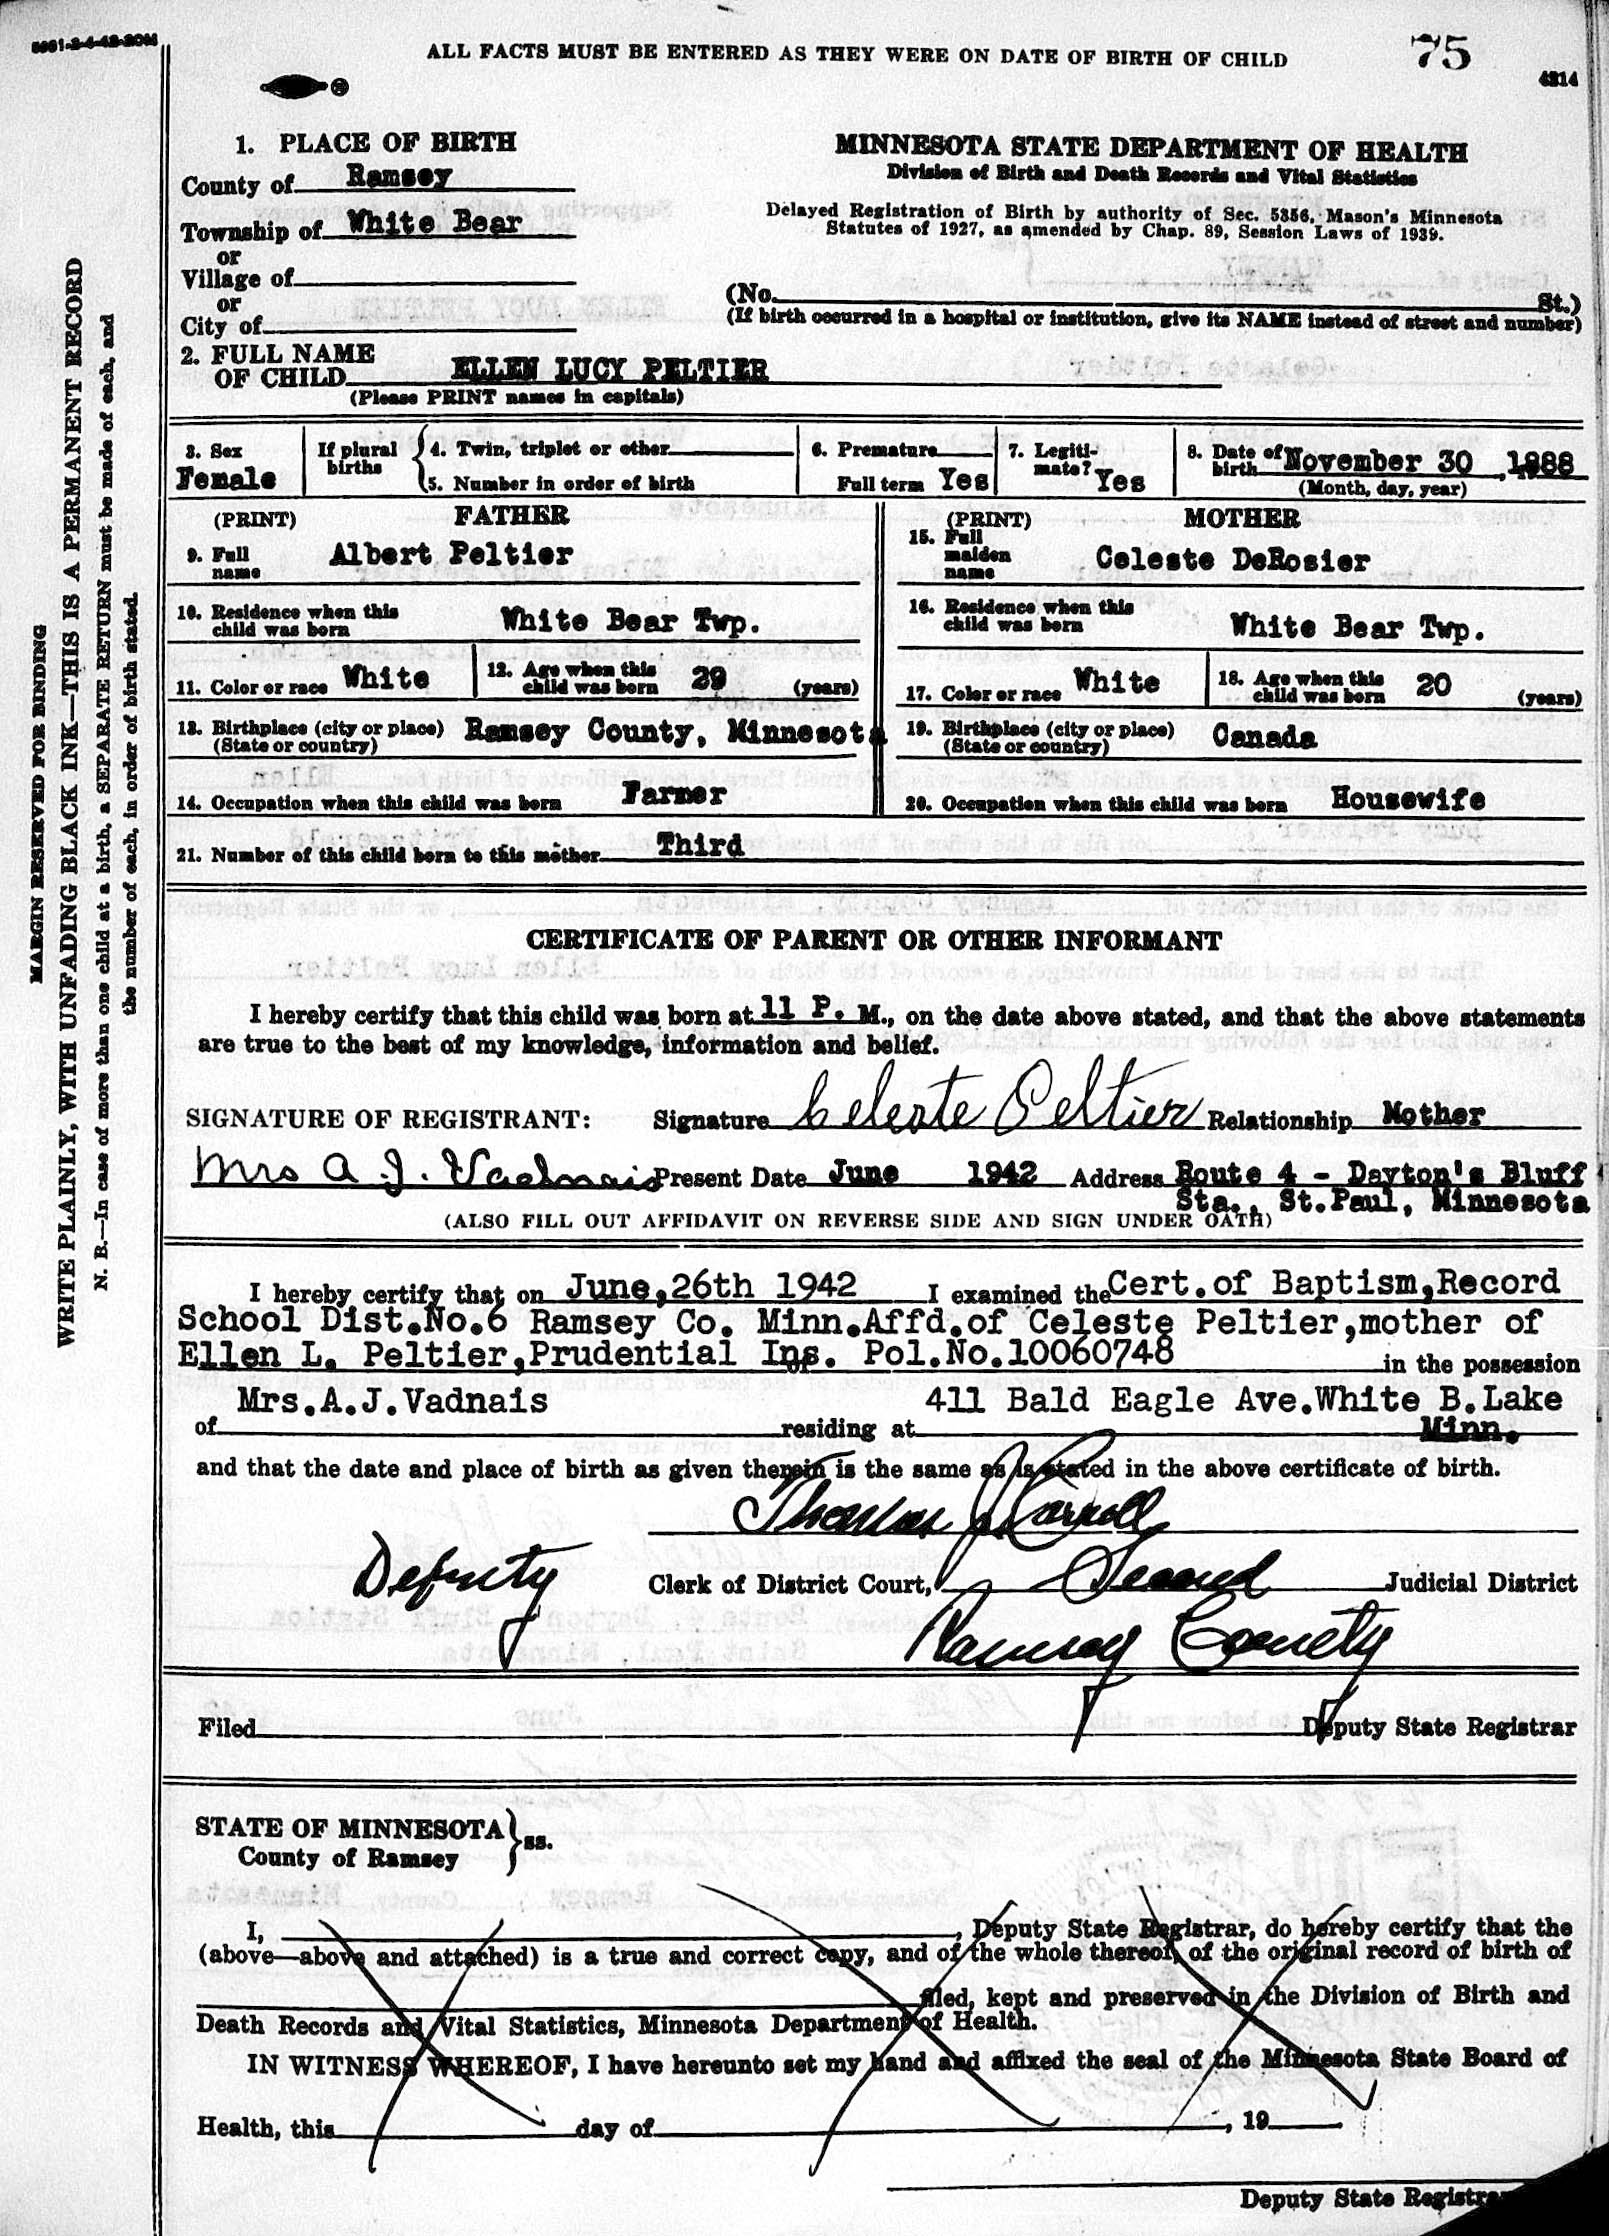 ALL FACTS MUST BE ENTERED AS THEY WERE ON DATE OF BIRTH OF CHILD
75
4214
1. PLACE OF BIRTH
County of Ramsey
Township of White Bear
or
Village of
or
City of
MINNESOTA STATE DEPARTMENT OF HEALTH
Division of Birth and Death Records and Vital Statistics
Delayed Registration of Birth by authority of Sec. 5356, Mason's Minnesota
Statutes of 1927, as amended by Chap. 89, Session Laws of 1939.
(No. St.)
(If birth occurred in a hospital or institution, give its NAME instead of street and number)
2. FULL NAME
OF CHILD ELLEN LUCY PELTIER
(Please PRINT names in capitals)
3. Sex
Female
If plural
births
4. Twin, triplet or other
5. Number in order of birth
6. Premature
Full term Yes
7. Legiti-
mate? Yes
8. Date of
birth November 30, 1888
(Month, day, year)
(PRINT) FATHER
9. Full
name Albert Peltier
10. Residence when this
child was born White Bear Twp.
11. Color or race White
12. Age when this
child was born 29 (years)
13. Birthplace (city or place) Ramsey County, Minnesota
(State or country)
14. Occupation when this child was born Farmer
(PRINT) MOTHER
15. Full
maiden
name Celeste DeRosier
16. Residence when this
child was born White Bear Twp.
17. Color or race White
18. Age when this
child was born 20 (years)
19. Birthplace (city or place) Canada
(State or country)
20. Occupation when this child was born Housewife
21. Number of this child born to this mother Third
CERTIFICATE OF PARENT OR OTHER INFORMANT
I hereby certify that this child was born at 11 P. M., on the date above stated, and that the above statements
are true to the best of my knowledge, information and belief.
SIGNATURE OF REGISTRANT: Signature Celeste Peltier Relationship Mother
Mrs A. J. Vadnais Present Date June 1942 Address Route 4 - Dayton's Bluff
Sta., St.Paul, Minnesota
(ALSO FILL OUT AFFIDAVIT ON REVERSE SIDE AND SIGN UNDER OATH)
I hereby certify that on June,26th 1942 I examined the Cert.of Baptism,Record
School Dist.No.6 Ramsey Co. Minn.Affd.of Celeste Peltier,mother of
Ellen L. Peltier,Prudential Ins. Pol.No.10060748 in the possession
of Mrs.A.J.Vadnais residing at 411 Bald Eagle Ave.White B.Lake
Minn.
and that the date and place of birth as given therein is the same as is stated in the above certificate of birth.
Thomas J Carroll
Deputy Clerk of District Court, Second Judicial District
Ramsey County
Filed Deputy State Registrar
STATE OF MINNESOTA
County of Ramsey } ss.
I, , Deputy State Registrar, do hereby certify that the
(above—above and attached) is a true and correct copy, and of the whole thereof, of the original record of birth of
filed, kept and preserved in the Division of Birth and
Death Records and Vital Statistics, Minnesota Department of Health.
IN WITNESS WHEREOF, I have hereunto set my hand and affixed the seal of the Minnesota State Board of
Health, this day of , 19
Deputy State Registrar
MARGIN RESERVED FOR BINDING
WRITE PLAINLY, WITH UNFADING BLACK INK—THIS IS A PERMANENT RECORD
N. B.—In case of more than one child at a birth, a SEPARATE RETURN must be made of each, and
the number of each, in order of birth stated.